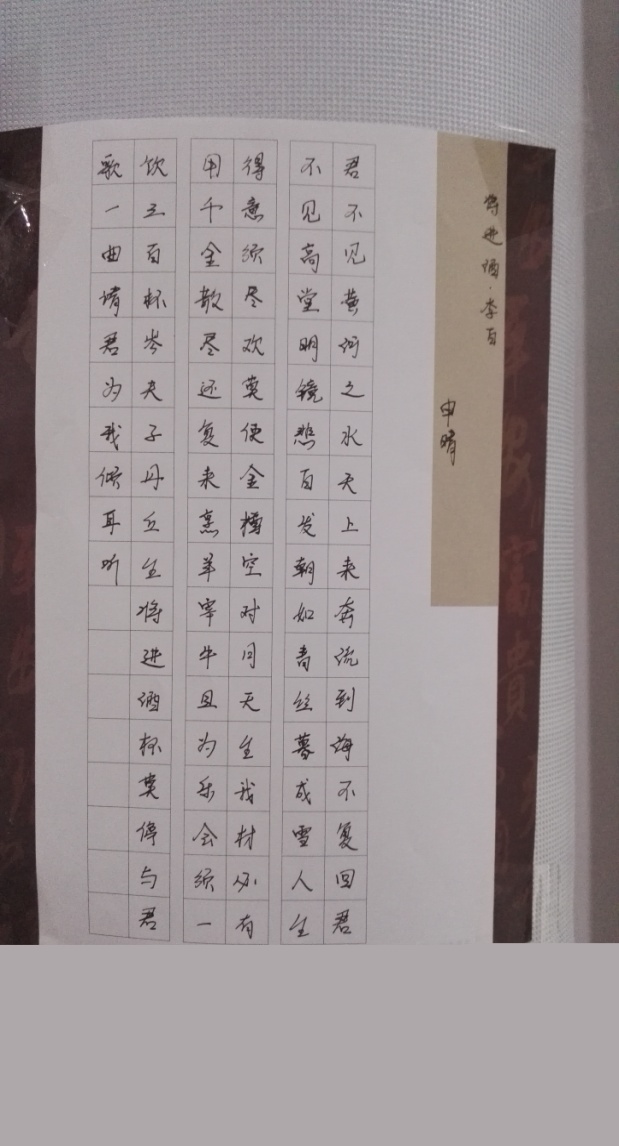 将进酒·李白
申晴
君不见黄河之水天上来奔流到海不复回君
不见高堂明镜悲白发朝如青丝暮成雪人生
得意须尽欢莫使金樽空对月天生我材必有
用千金散尽还复来烹羊宰牛且为乐会须一
饮三百杯岑夫子丹丘生将进酒杯莫停与君
歌一曲请君为我倾耳听